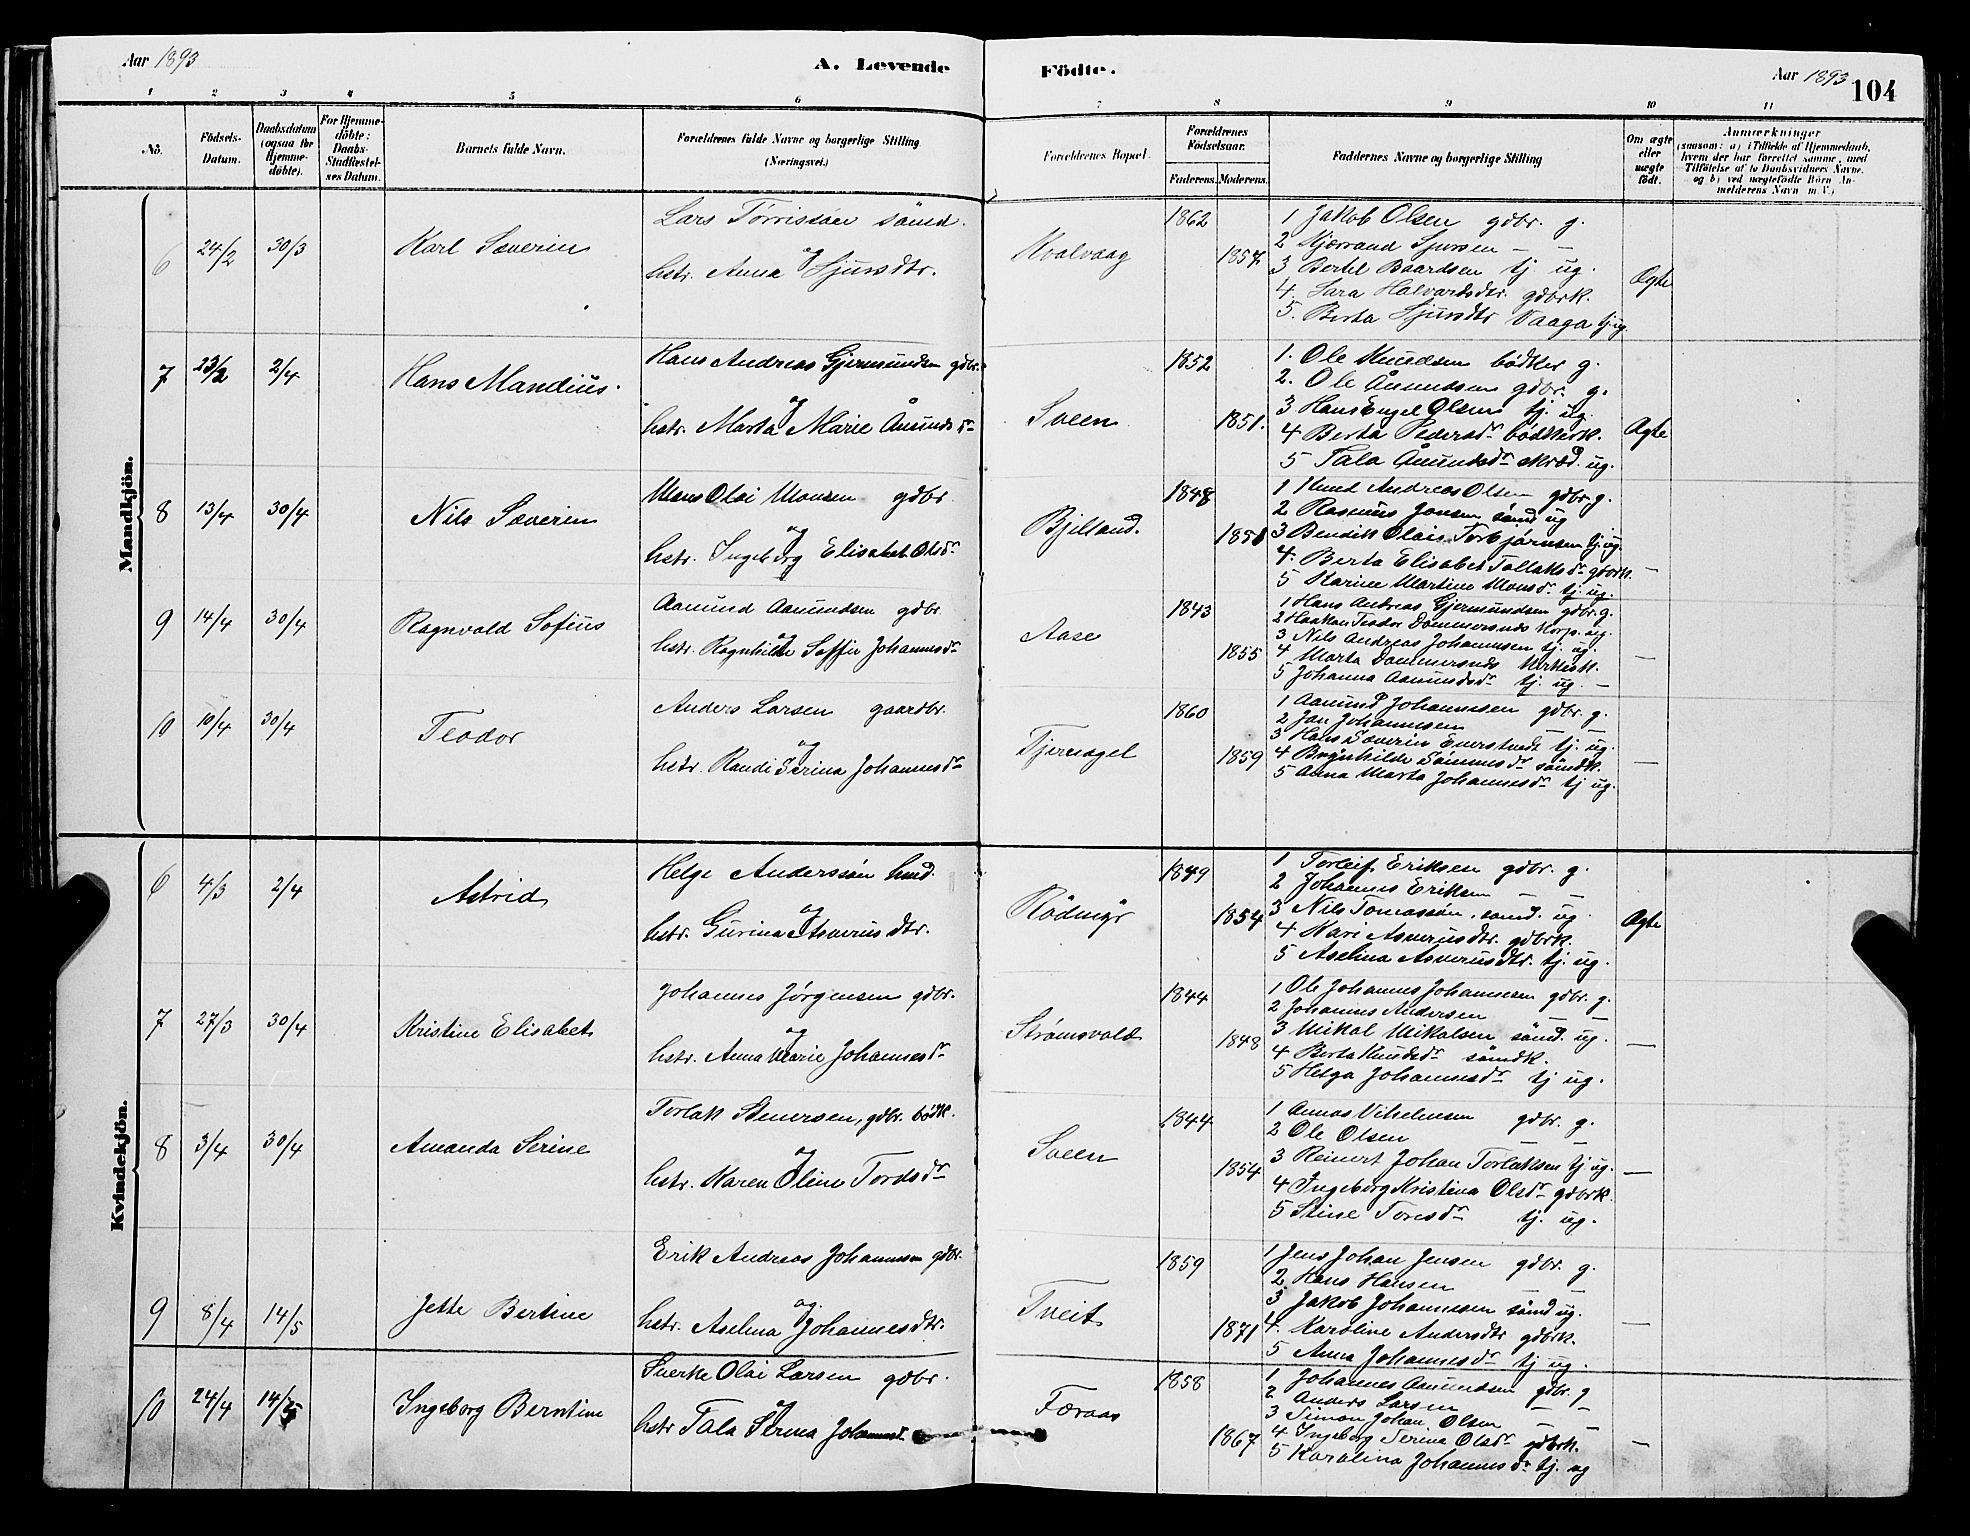 Aar 1893
A. Levende
Födte.
Aar 1893
104
1 2 3 4 5 6 7 8 9 10 11
No.
Födsels-Datum.
Daabsdatum (ogsaa for Hjemme-döbte).
For Hjemme-döbte: Daabs-Stadfæstel-ses Datum.
Barnets fulde Navn.
Forældrenes fulde Navne og borgerlige Stilling (Næringsvei.)
Forældrenes Bopæl.
Forældrenes Födselsaar.
Faderens. Moderens.
Faddernes Navne og borgerlige Stilling
Om ægte eller uægte födt.
Anmærkninger
(saasom: a) i Tilfælde af Hjemmedaab, hvem der har forrettet samme, med Tilföielse af to Daabsvidners Navne, og b) ved uægtefödte Börn An-melderens Navn m. V.)
Mandkjön.
6 24/2 30/3 Karl Severin
Lars Tørrisson sömd.
og
hstr. Anna Sjursdtr.
Kvalvaag
1862
1857
1 Jakob Olsen gdbr. g.
2 Hjerrand Sjursen — —
3 Bertel Baardsen tj ug.
4. Sara Halvardsdtr. gdbrk.
5. Berta Sjursdtr Vaaga tj. ug.
Ægte
7 23/2 2/4 Hans Mandius.
Hans Andreas Gjermundsen gdbr.
og
hstr. Marta Marie Åmundsdr
Sveen
1852
1851.
1. Ole Knudsen bødker g.
2. Ole Åmundsen gdbr. g.
3 Hans Engel Olsen tj. ug.
4 Berta Pedersdr bødkerk.
5 Tala Åmundsdr skræd. ug.
Ægte
8 13/4 30/4 Nils Severin
Mons Olai Monsen gdbr
og
hstr. Ingeborg Elisabet Olsdr
Bjelland.
1848
1851
1 Knud Andreas Olsen gdbr. g.
2 Rasmus Jonsen sömd ug
3 Bendik Olais Torbjørnsen tj. ug.
4. Berta Elisabet Tollaksdr gdbrk.
5 Karine Martine Monsdr tj. ug.
—
9 14/4 30/4 Ragnvald Sofius
Aamund Aamundsen gdbr
og
hstr. Ragnhilde Soffie Johannesdr
Aase
1843
1855
1 Hans Andreas Gjermundsen gdbr. g.
2 Haakon Teodor Dommersnes Korp. ug.
3 Nils Andreas Johannesen tj. ug.
4 Marta Dommersnes Kirkesk.
5 Johanna Aamundsdr tj. ug. —
—
10 10/4 30/4 Teodor
Anders Larsen gaardbr.
og
hstr. Randi Serina Johannesdr
Tjernagel
1860
1859
1 Aamund Johannesen gdbr. g.
2 Jan Johannesen — —
3 Hans Severin Enerstvedt tj. ug.
4 Brynhilde Sömmesdr sömdk.
5 Anna Marta Johannesdr tj ug.
—
Kvindekjön.
6 4/3 2/4 Astrid
Helge Anderssøn hmd.
og
hstr. Gurina Asverusdtr.
Rødmyr
1849
1854
1 Torleif Eriksen gdbr. g.
2 Johannes Eriksen — —
3 Nils Tomassøn. sömd. ug.
4 Kari Asverusdtr. gdbrk.
5 Aselina Asverusdtr. tj. ug.
Ægte
7 27/3 30/4 Kristine Elisabet
Johannes Jørgensen gdbr.
og
hstr. Anna Marie Johannesdr
Strømsvold
1844
1848
1 Ole Johannes Johannesen gdbr. g.
2 Johannes Andersen — —
3 Mikal Mikalsen sömd. ug.
4 Berta Knudsdr sömdk.
5 Helga Johannesdr tj ug.
—
8 3/4 30/4 Amanda Serine
Torlak Stenersen, gdbr. bødk.
og
hstr. Karen Oline Tordsdr
Sveen
1844
1854
1 Annas Vihelmsen gdbr. g.
2 Ole Olsen — —
3 Reinert Johan Torlaksen tj ug.
4 Ingeborg Kristina Olsdr gdbrk.
5 Stine Toresdr tj. ug.
—
9 8/4 14/5 Jette Bertine
Erik Andreas Johannesen gdbr.
og
hstr. Aselina Johannesdtr.
Tveit
1859
1871
1 Jens Johan Jensen gdbr. g.
2 Hans Hansen — —
3 Jakob Johannessen sömd ug.
4. Karoline Andersdtr gdbrk.
5 Anna Johannesdr tj ug.
—
10 24/4 14/5 Ingeborg Berntine
Sverke Olai Larsen gdbr.
og
hstr Tala Serina Johannesd
Færaas
1858
1867
1 Johannes Aamundsen gdbr. g
2 Anders Larsen — —
3 Simon Johan Olsen — —
4 Ingeborg Serina Olsdr gdbrk.
5 Karolina Johannesdr tj. ug
—